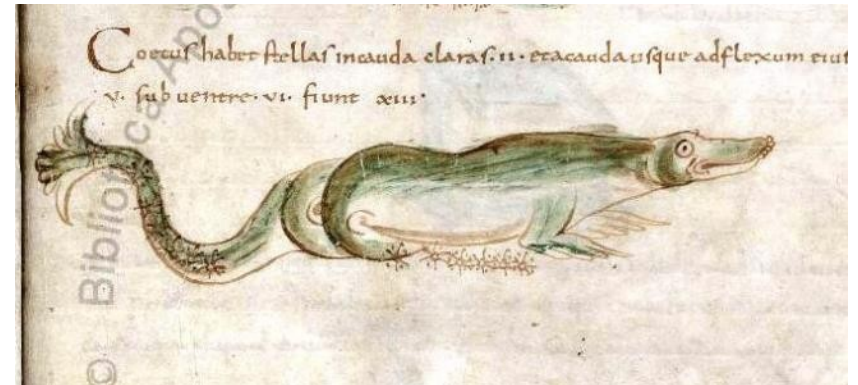 Coetus habet stellas in cauda claras · ii · et a cauda usque ad flexum eius
v · sub uentre · vi · fiunt xiii ·
© Biblioteca Apos